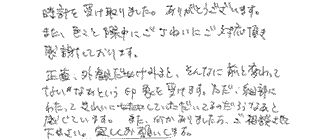 時計を受け取りました。ありがとうございます。
また、色々と丁寧にご対応頂き
感謝しております。
正直、外観だけみると、そんなに前と変わって
ないかなという印象を受けます。ただ、細部に
わたってきれいに していただいてるのだろうなあと
感じています。また、何かありましたら、ご相談させて
下さい。宜しくお願いします。